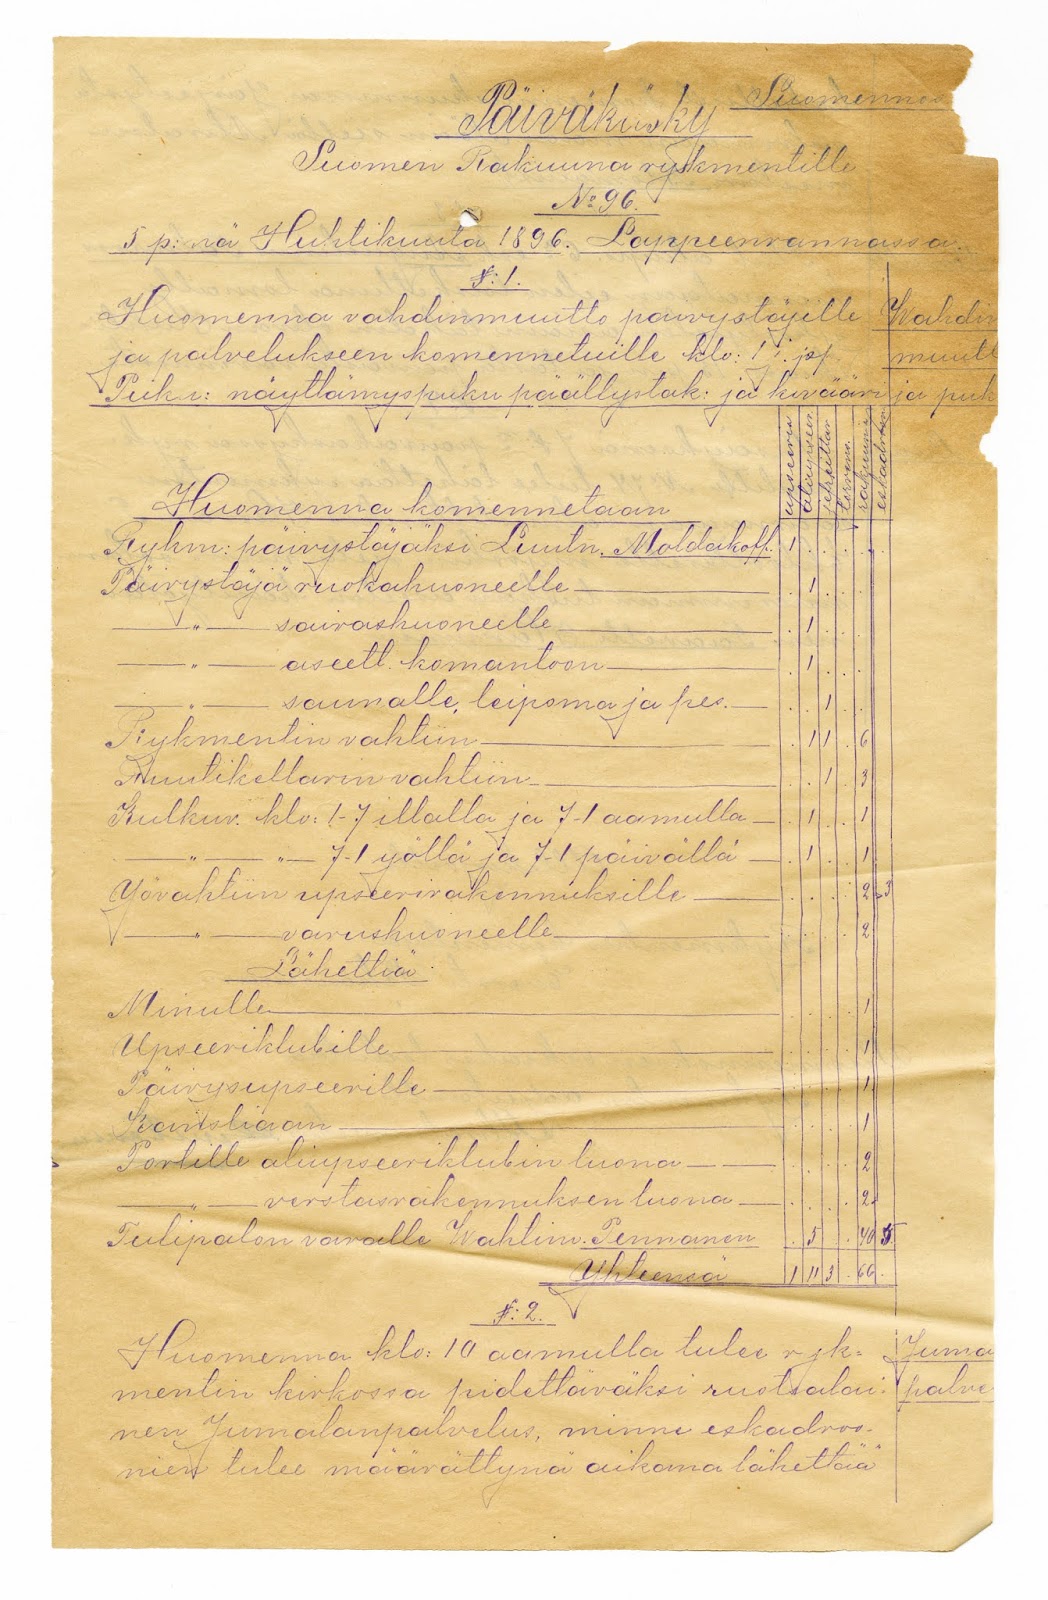 Suomennos
Päiväkäsky
Suomen Rakuuna rykmentille
№ 96.
5 p:nä Huhtikuuta 1896. Lappeenrannassa.
§: 1.
Huomenna vahdinmuutto päivystäjille Wahdin
ja palvelukseen komennetuille klo: 1 j. jpp. muutt
Puku: näyttämyspuku päällystak: ja kivääri ja puk
upseeria
aliupseeria
rakuunia
eskadrona
Huomenna komennetaan
Rykm: päivystäjäksi Luutn. Moldakoff. 1 . . . . .
Päivystäjä ruokahuoneelle . 1 . . .
" sairashuoneelle . 1 . . .
" aseetl. komantoon . 1 . . .
" saunalle, leipoma ja pes. . . 1 . .
Rykmentin vahtiin . 1 1 . 6
Ruutikellarin vahtiin . . 1 . 3
Kulkuv. klo: 1-7 illalla ja 7-1 aamulla . 1 . . 1
" " 7-1 yöllä ja 7-1 päivällä . 1 . . 1
Yövahtiin upseerirakennuksille . . . . 2 3
" varushuoneelle . . . . 2
Lähettiä
Minulle . . . . 1
Upseeriklubille . . . . 1
Päivysupseerille . . . . 1
Kansliaan . . . . 1
Portille aliupseeriklubin luona . . . . 2
" verstasrakennuksen luona . . . . 2
Tulipalon varalle Wahtim. Pennanen . 5 . . 40 5.
Yhteensä 1 11 3 . 66 .
§: 2.
Huomenna klo: 10 aamulla tulee ryk= Juma
mentin kirkossa pidettäväksi ruotsalai= palve
nen Jumalanpalvelus, minne eskadroo-
nien tulee määrättynä aikana lähettää